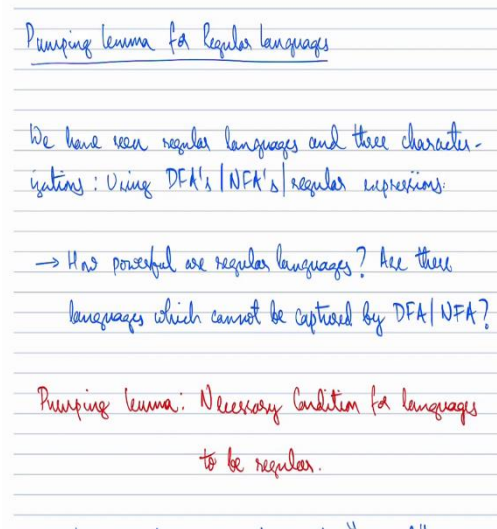 Pumping lemma for Regular languages
We have seen regular languages and three character-
izations: Using DFA's | NFA's | regular expressions.
→ How powerful are regular languages? Are there
languages which cannot be captured by DFA | NFA?
Pumping lemma: Necessary Condition for languages
to be regular.